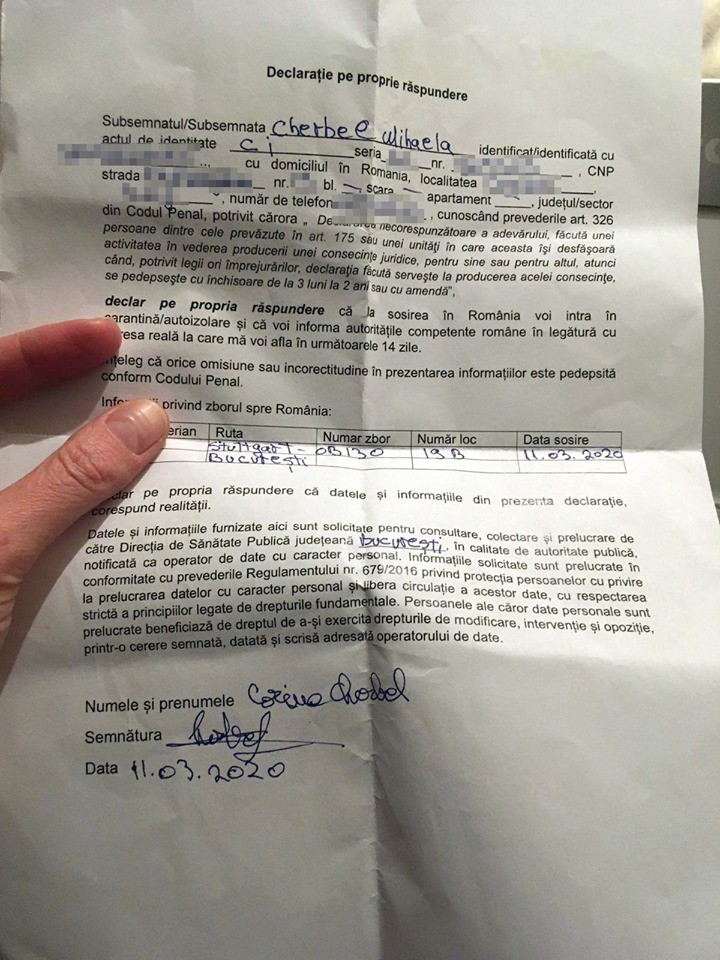 Declarație pe proprie răspundere
Subsemnatul/Subsemnata Cherbee Mihaela identificat/identificată cu
actul de identitate CI seria nr. , CNP
... cu domiciliul în Romania, localitatea
strada nr. bl. — scara — apartament , județul/sector
, număr de telefon , cunoscând prevederile art. 326
din Codul Penal, potrivit cărora „ Declararea necorespunzătoare a adevărului, făcută unei
persoane dintre cele prevăzute în art. 175 sau unei unități în care aceasta își desfășoară
activitatea în vederea producerii unei consecințe juridice, pentru sine sau pentru altul, atunci
când, potrivit legii ori împrejurărilor, declarația făcută servește la producerea acelei consecințe,
se pedepsește cu închisoare de la 3 luni la 2 ani sau cu amendă",
declar pe propria răspundere că la sosirea în România voi intra în
carantină/autoizolare și că voi informa autoritățile competente române în legătură cu
resa reală la care mă voi afla în următoarele 14 zile.
nțeleg că orice omisiune sau incorectitudine în prezentarea informațiilor este pedepsită
conform Codului Penal.
Infor ii privind zborul spre România:
erian Ruta Numar zbor Număr loc Data sosire
Stuttgart- 0B130 19B 11.03.2020
București
clar pe propria răspundere că datele și informațiile din prezenta declarație,
corespund realității.
Datele și informațiile furnizate aici sunt solicitate pentru consultare, colectare și prelucrare de
către Direcția de Sănătate Publică județeană București, în calitate de autoritate publică,
notificată ca operator de date cu caracter personal. Informațiile solicitate sunt prelucrate în
conformitate cu prevederile Regulamentului nr. 679/2016 privind protecția persoanelor cu privire
la prelucrarea datelor cu caracter personal și libera circulație a acestor date, cu respectarea
strictă a principiilor legate de drepturile fundamentale. Persoanele ale căror date personale sunt
prelucrate beneficiază de dreptul de a-și exercita drepturile de modificare, intervenție și opoziție,
printr-o cerere semnată, datată și scrisă adresată operatorului de date.
Numele și prenumele Corina
Semnătura
Data 11.03.2020